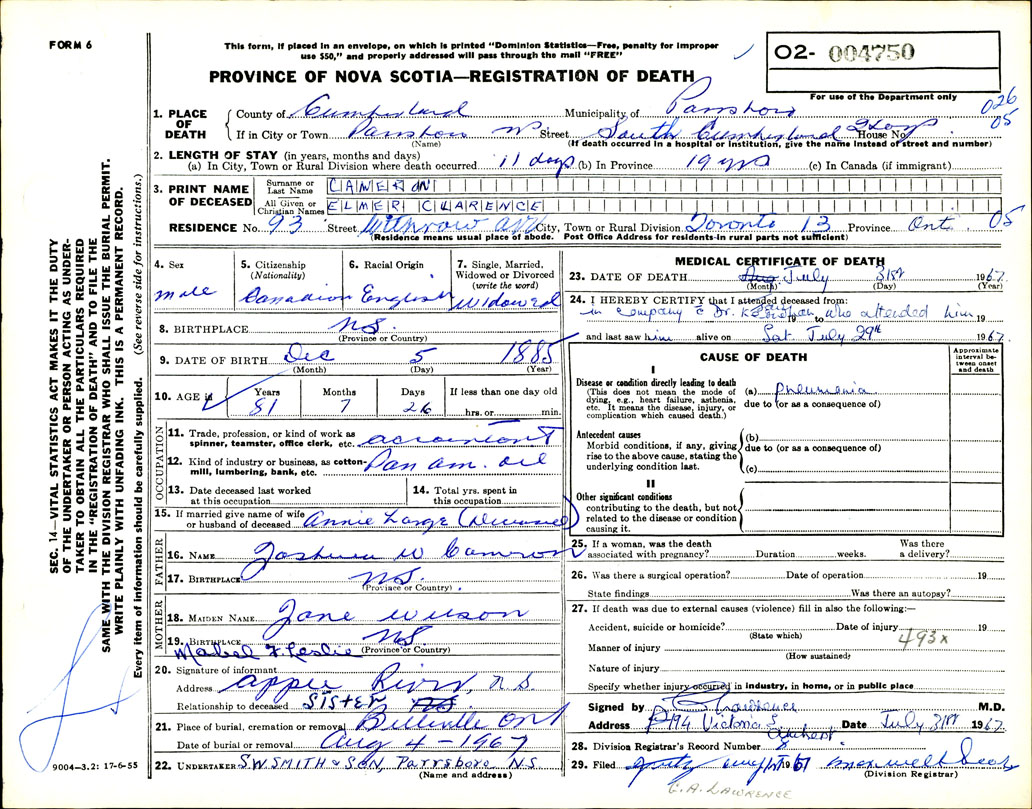 FORM 6
This form, if placed in an envelope, on which is printed "Dominion Statistics—Free, penalty for improper
use $50," and properly addressed will pass through the mail "FREE"
O2- 004750
For use of the Department only
PROVINCE OF NOVA SCOTIA—REGISTRATION OF DEATH
026
05
1. PLACE OF DEATH
County of Cumberland Municipality of Parrsboro
If in City or Town Parrsboro Street South Cumberland House No.
(Name) (If death occurred in a hospital or institution, give the name instead of street and number)
2. LENGTH OF STAY (in years, months and days)
(a) In City, Town or Rural Division where death occurred 11 days (b) In Province 19 yrs (c) In Canada (if immigrant)
3. PRINT NAME OF DECEASED
Surname or Last Name CAMERON
All Given or Christian Names ELMER CLARENCE
RESIDENCE No. 93 Street Withrow ave City, Town or Rural Division Toronto 13 Province Ont. 05
(Residence means usual place of abode. Post Office Address for residents in rural parts not sufficient)
4. Sex
male
5. Citizenship
(Nationality)
Canadian
6. Racial Origin
English
7. Single, Married,
Widowed or Divorced
(write the word)
Widowed
8. BIRTHPLACE NS.
(Province or Country)
9. DATE OF BIRTH Dec 5 1885
(Month) (Day) (Year)
10. AGE if Years Months Days If less than one day old
81 7 26 hrs. or min.
OCCUPATION
11. Trade, profession, or kind of work as
spinner, teamster, office clerk, etc. accountant
12. Kind of industry or business, as cotton-
mill, lumbering, bank, etc. Pan am. oil
13. Date deceased last worked
at this occupation
14. Total yrs. spent in
this occupation
15. If married give name of wife
or husband of deceased Annie Large (Deceased)
FATHER
16. NAME Joshua W Cameron
17. BIRTHPLACE NS.
(Province or Country)
MOTHER
18. MAIDEN NAME Jane Wilson
19. BIRTHPLACE NS
(Province or Country)
Mabel F. Leslie
20. Signature of informant
Address Apple River, N.S.
Relationship to deceased SISTER
21. Place of burial, cremation or removal Belleville Ont
Date of burial or removal Aug 4 - 1967
22. UNDERTAKER S.W SMITH & SON, Parrsboro N.S
(Name and address)
MEDICAL CERTIFICATE OF DEATH
23. DATE OF DEATH July 31st 1967
(Month) (Day) (Year)
24. I HEREBY CERTIFY that I attended deceased from:
in company c Dr. who attended him 19
and last saw him alive on Sat July 29th 1967
CAUSE OF DEATH
Approximate interval between onset and death
I
Disease or condition directly leading to death
(This does not mean the mode of
dying, e.g., heart failure, asthenia,
etc. It means the disease, injury, or
complication which caused death.)
(a) Pneumonia
due to (or as a consequence of)
Antecedent causes
Morbid conditions, if any, giving
rise to the above cause, stating the
underlying condition last.
(b)
due to (or as a consequence of)
(c)
II
Other significant conditions
contributing to the death, but not
related to the disease or condition
causing it.
25. If a woman, was the death
associated with pregnancy? Duration weeks. Was there
a delivery?
26. Was there a surgical operation? Date of operation 19
State findings Was there an autopsy?
27. If death was due to external causes (violence) fill in also the following:—
Accident, suicide or homicide? Date of injury 19
(State which)
493x
Manner of injury
(How sustained)
Nature of injury
Specify whether injury occurred in industry, in home, or in public place
Signed by Lawrence M.D.
Address 194 Victoria S. Amherst Date July 31st 1967
28. Division Registrar's Record Number 8
29. Filed 1967
(Division Registrar)
G. A. LAWRENCE
9004—3.2: 17-6-55
SEC. 14—VITAL STATISTICS ACT MAKES IT THE DUTY
OF THE UNDERTAKER OR PERSON ACTING AS UNDER-
TAKER TO OBTAIN ALL THE PARTICULARS REQUIRED
IN THE "REGISTRATION OF DEATH" AND TO FILE THE
SAME WITH THE DIVISION REGISTRAR WHO SHALL ISSUE THE BURIAL PERMIT.
WRITE PLAINLY WITH UNFADING INK. THIS IS A PERMANENT RECORD.
Every item of information should be carefully supplied. (See reverse side for instructions.)